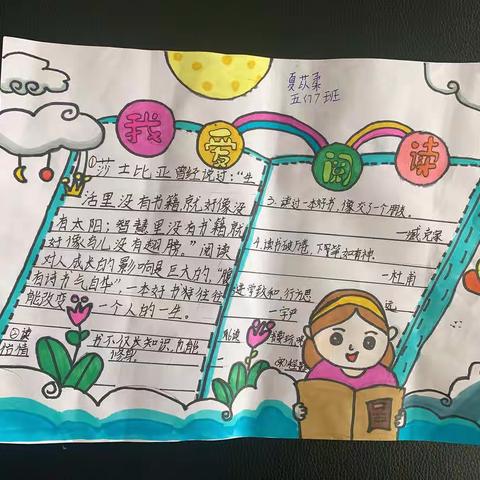 夏苡柔
五(7)班
我爱阅读
①莎士比亚曾经说过:"生
活里没有书籍就好像没
有太阳;智慧里没有书籍就
好像鸟儿没有翅膀。"阅读
对人成长的影响是巨大的,"腹
有诗书气自华",一本好书往往
能改变一个人的一生。
②读书不仅长知识,也能
修身
3.读过一本好书,像交了一个朋友。
—臧克家
4.读书破万卷,下笔如有神。
—杜甫
远。